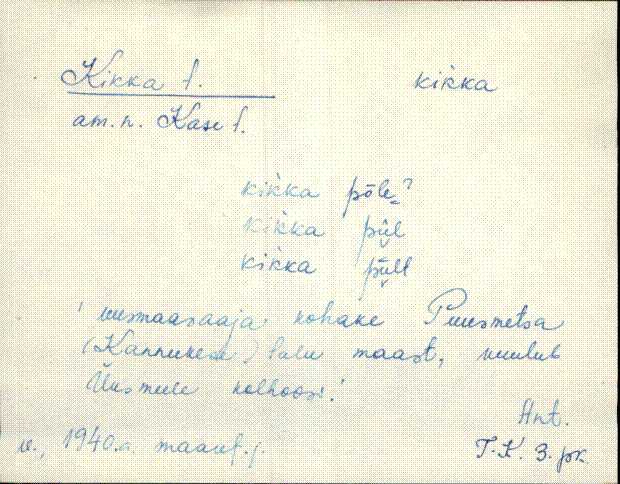 Kikka t. kikka
am. n. Kase t.
kikka põle?
kikka pül
kikka pült
'uusmaasaaja kohake Puusmetsa
(Kannukese) talu maast, kuulub
Uusmeele kolhoosi.'
Ant.
1940.a. T.K. 3. pk.